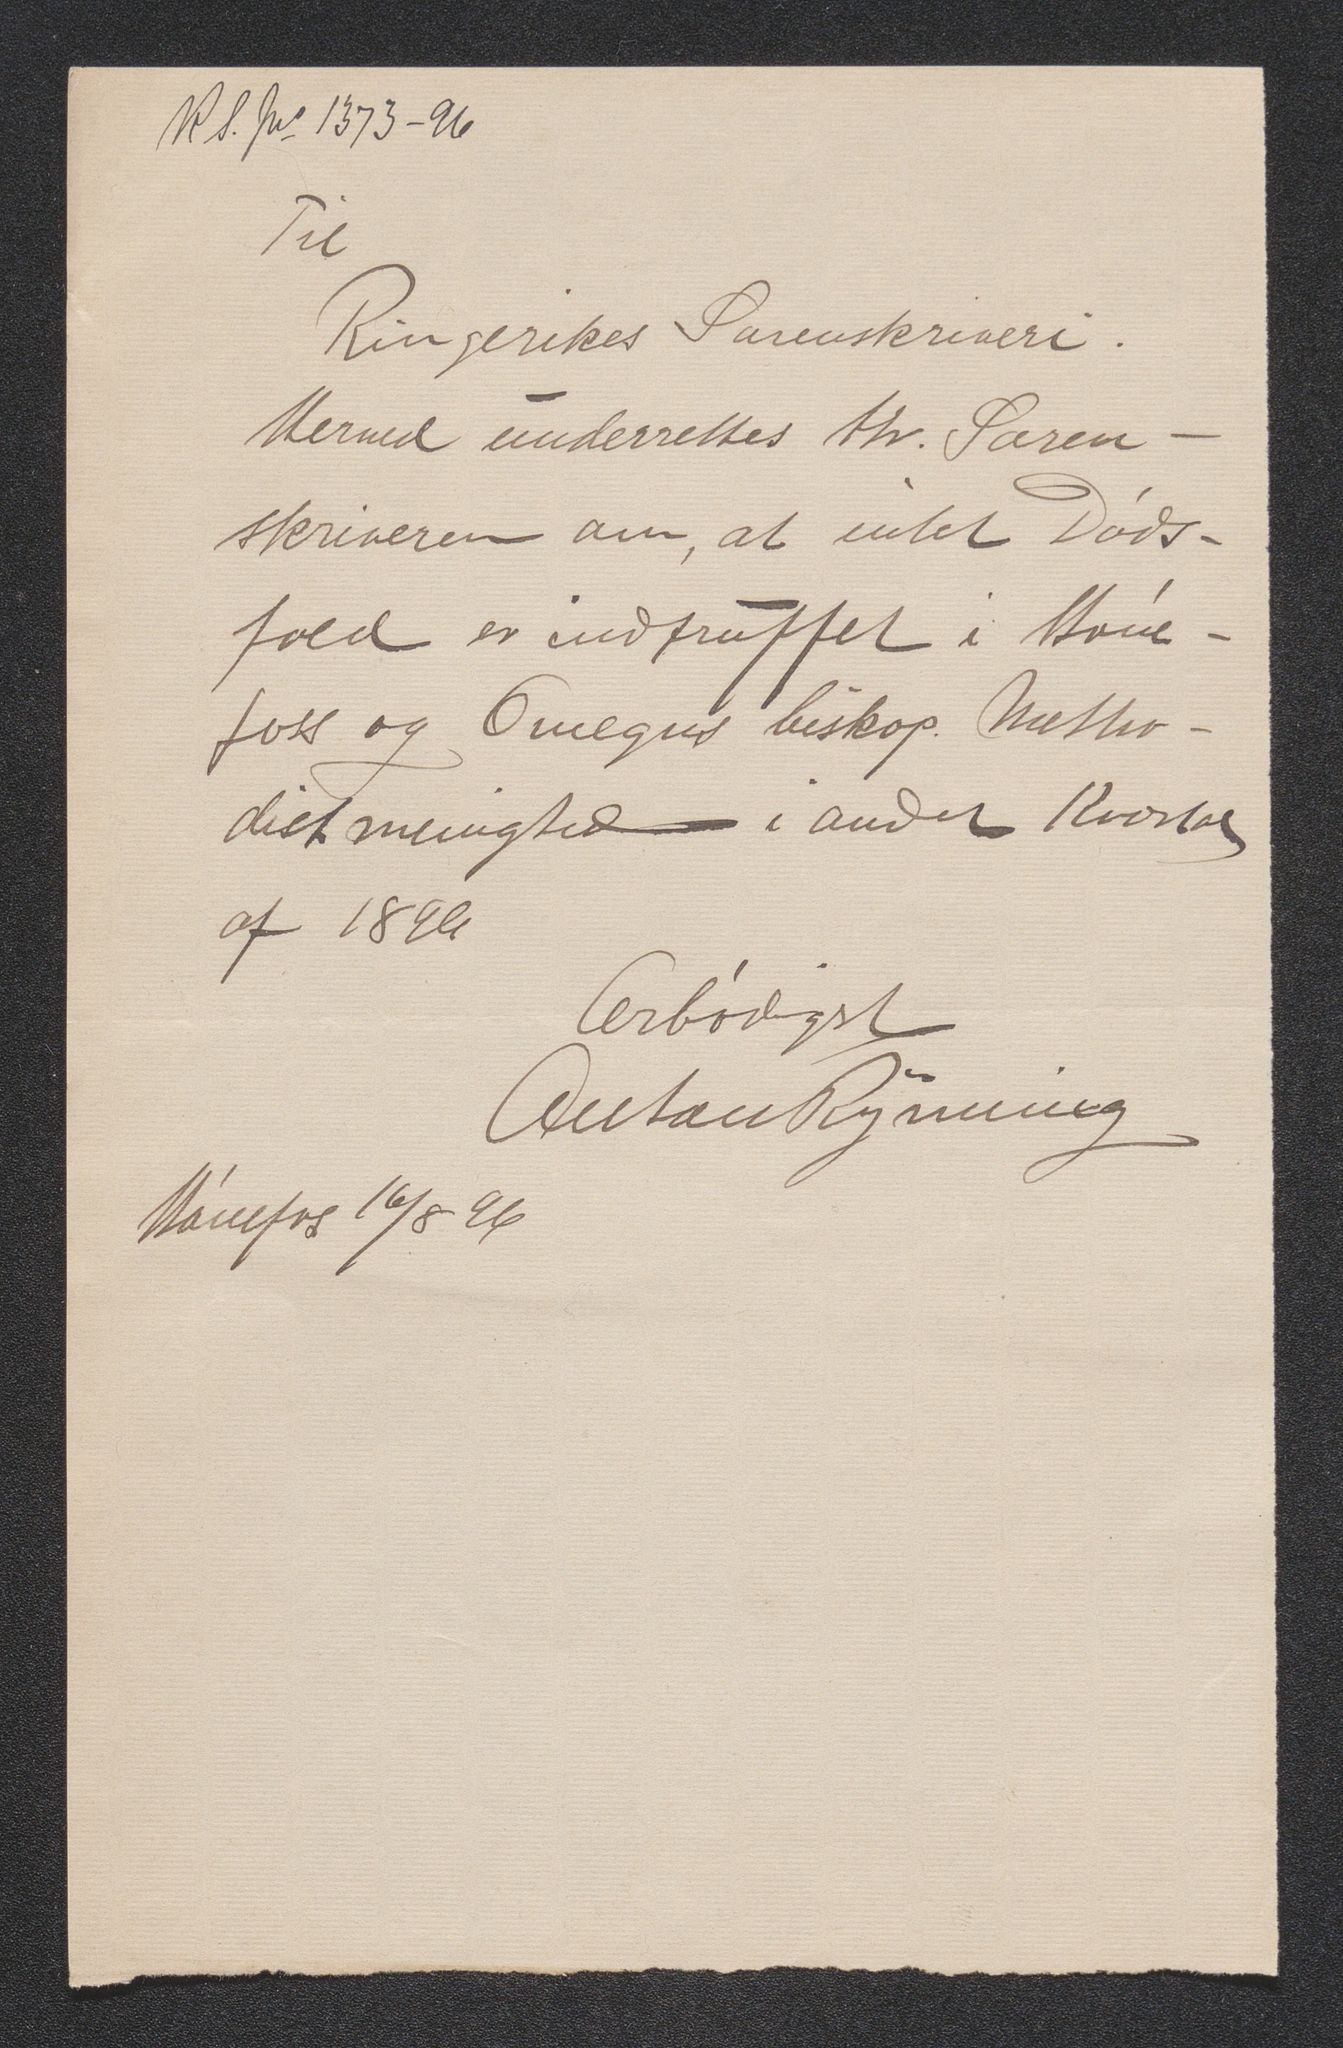 R S. Jno 1373-96
Til
Ringerikes Sorenskriveri.
Herved underrettes Hr. Soren-
skriveren om, at intet Døds-
fald er indtruffet i Høne-
foss og Omegns biskop. Metho-
distmenighed i andet Kvartal
af 1896
Ærbødigst
Anton Rynning
Hønefos 16/8 96